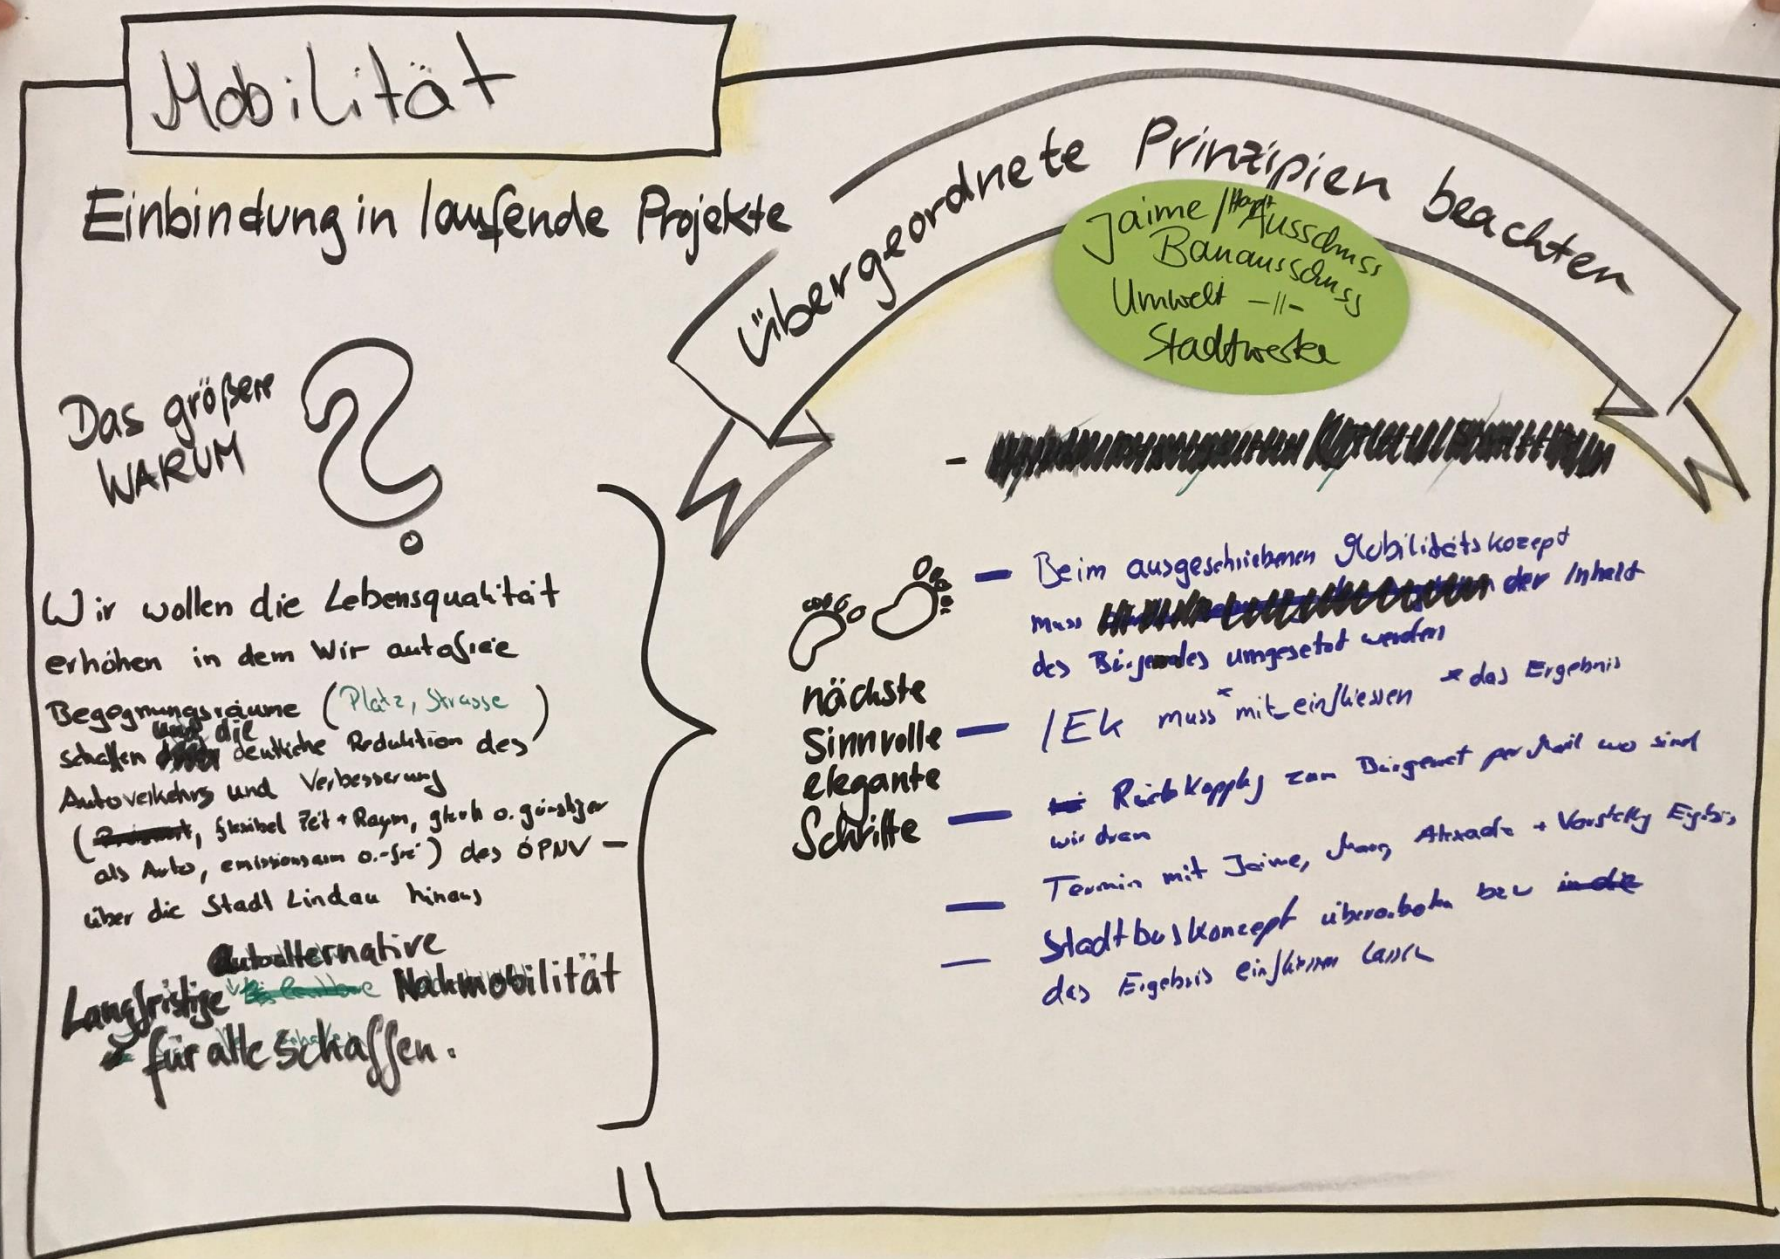 Mobilität
Einbindung in laufende Projekte
übergeordnete Prinzipien beachten
Jaime / Haupt Ausschuss
Bauausschuss
Umwelt -||-
Stadtwerke
Das größere
WARUM
Wir wollen die Lebensqualität
erhöhen in dem Wir autofreie
Begegnungsräume (Platz, Strasse)
schaffen und die deutliche Reduktion des
Autoverkehrs und Verbesserung
(flexibel Zeit + Raum, gleich o. günstiger
als Auto, emissionsarm o. -frei) des ÖPNV –
über die Stadt Lindau hinaus
autoalternative
Langfristige Nahmobilität
für alle schaffen.
nächste
Sinnvolle
elegante
Schritte
– Beim ausgeschriebenen Mobilitätskozept
muss der Inhalt
des umgesetzt werden
– IEK muss * mit einfliessen * das Ergebnis
– zum Bürgerrat per Mail wo sind
wir dran
– Termin mit Jaime, + Vorstellg
– Stadtbuskonzept überarbeiten bzw
das Ergebnis einfliessen lassen